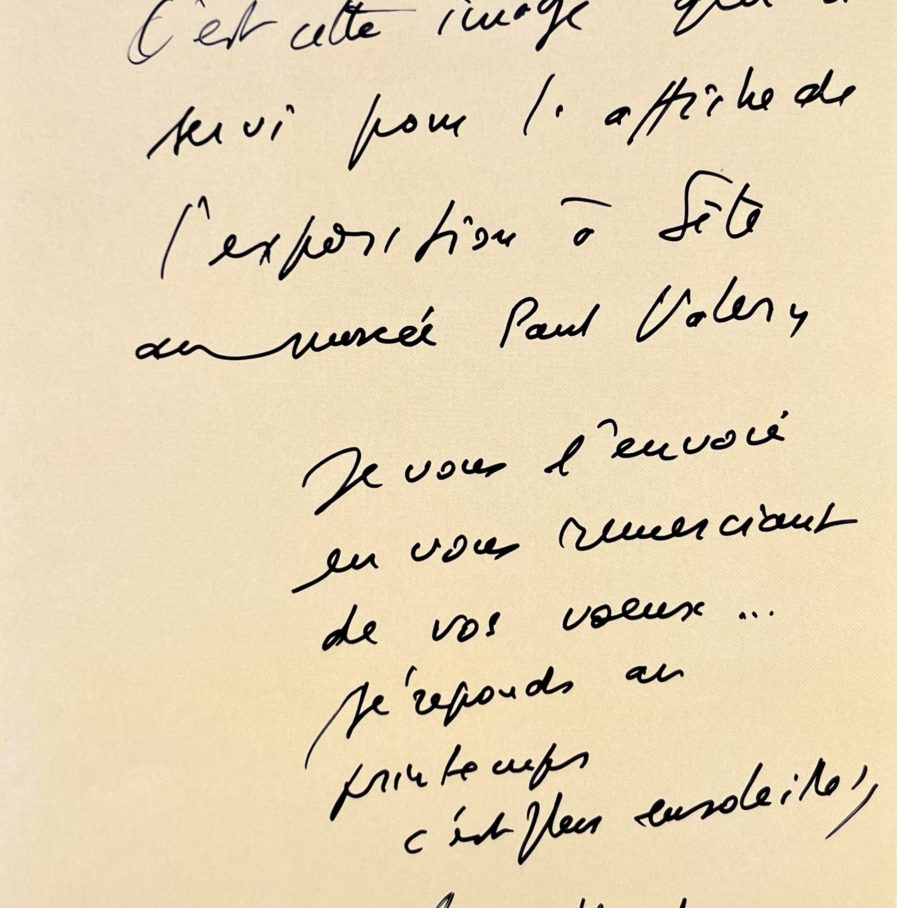 C'est cette image qui a
servi pour l'affiche de
l'exposition à Sète
au musée Paul Valery
Je vous l'envoie
en vous remerciant
de vos voeux ...
Je réponds au
printemps
c'est plus ensoleillé,